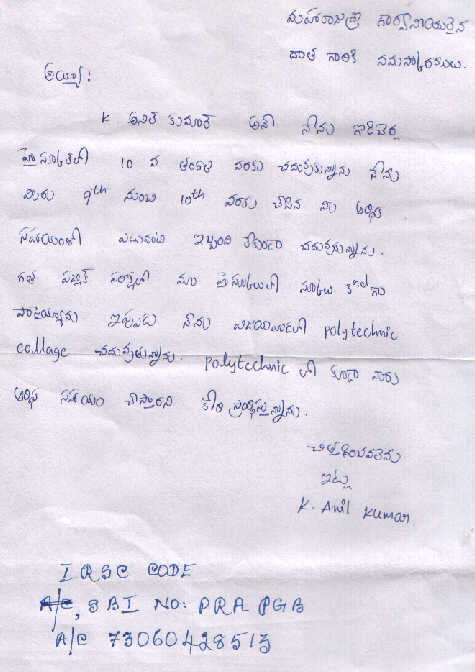 మహారాజశ్రీ
దాత గారికి నమస్కారములు.
అయ్యా!
K అనిల్ కుమార్ అనే నేను
హైస్కూల్‌లో 10 వ తరగతి వరకు చదువుకున్నాను నేను
మీరు 9th నుంచి 10th వరకు చేసిన
సహాయంతో ఎటువంటి ఇబ్బంది లేకుండా చదువుకున్నాను.
గత పబ్లిక్ పరీక్షలలో మా స్కూలుకు 3rd గా
ఇప్పుడు నేను polytechnic
collage చదువుతున్నాను. polytechnic లో కూడా మీరు
ఆర్థిక సహాయం చేస్తారని
చిత్తగించవలెను
ఇట్లు
K. Anil Kumar
IRSC CODE
A/C, SBI NO: PRA PGB
A/C 73060428513